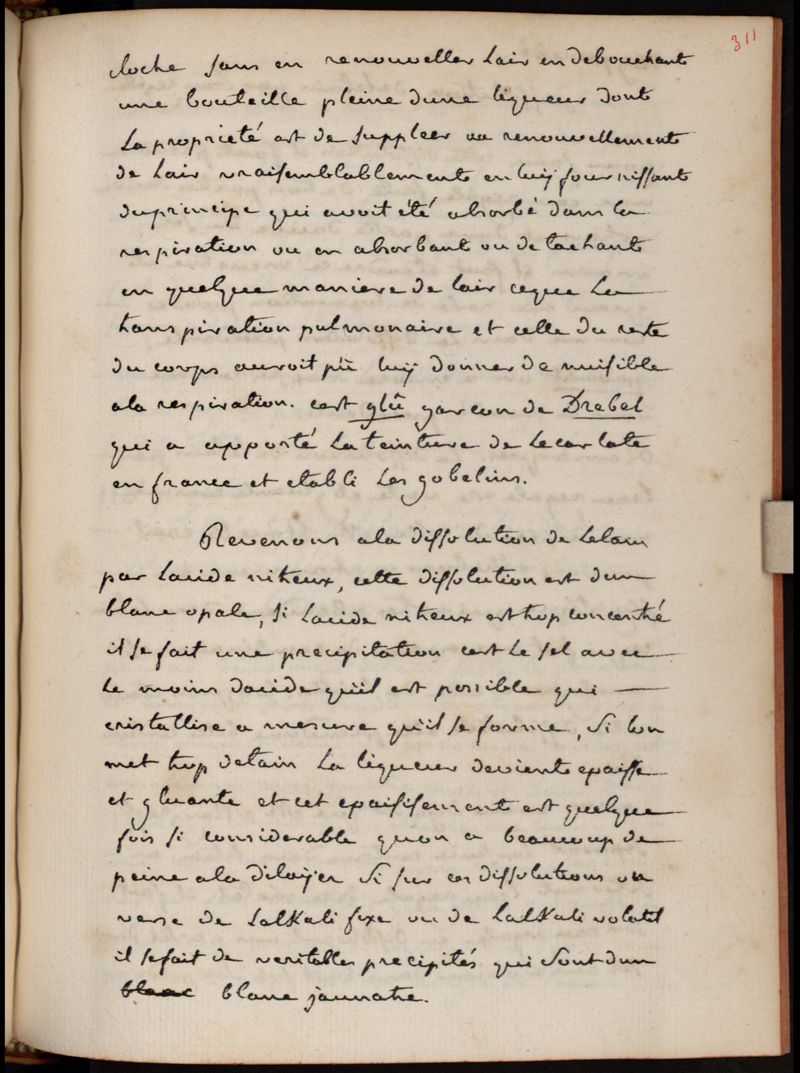 311
cloche sans en renouveller lair en debouchant
une bouteille pleine dune liqueur dont
la proprieté est de suppleer au renouvellement
de lair vraisemblablement en luy fournissant
du principe qui avoit été absorbé dans la
respiration ou en absorbant ou detachant
en quelque maniere de lair ceque la
transpiration pulmonaire et celle du reste
du corps auroit pû luy donner de nuisible
ala respiration. cest glû garcon de Drebel
qui a apporté la teinture de lecarlate
en france et etabli les gobelins.
Revenons ala dissolution de letain
par lacide nitreux, cette dissolution est dun
blanc opale, si lacide nitreux est trop concentré
il se fait une precipitation cest le sel avec
le moins dacide quil est possible qui
cristallise a mesure quil se forme, si lon
met trop detain la liqueur devient epaisse
et gluante et cet epaisissement est quelque
fois si considerable quon a beaucoup de
peine ala délayer si sur ces dissolutions on
verse de lalkali fixe ou de lalkali volatil
il se fait de veritables precipités qui sont dun
blanc blanc jaunatre.